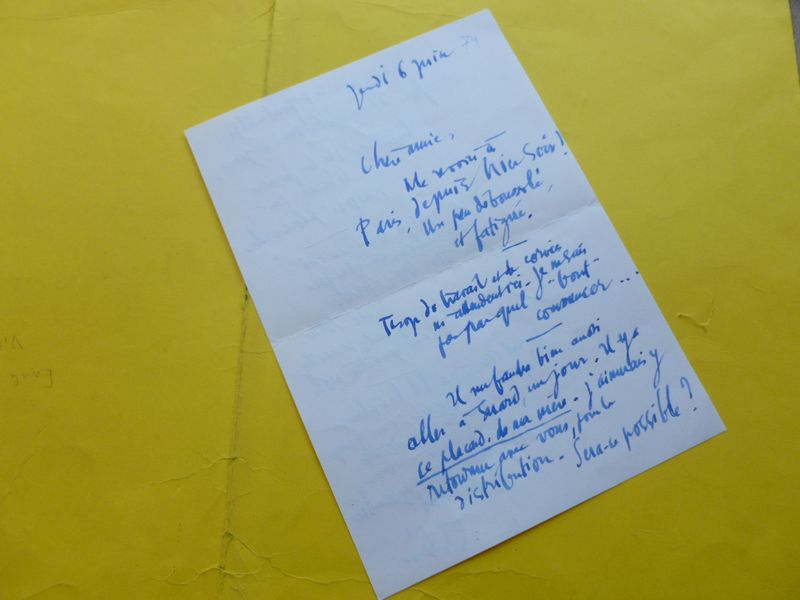 Jeudi 6 juin 74
Chère amie,
Me revoici à
Paris, depuis hier soir!
Un peu déboussolé,
et fatigué.
Trop de travail et de corvées
m'attendent ici. Je ne sais
pas par quel bout
commencer...
Il me faudra bien aussi
aller à un jour. Il y a
ce placard de ma mère. J'aimerais y
retourner avec vous, pour la
distribution. Sera-ce possible?